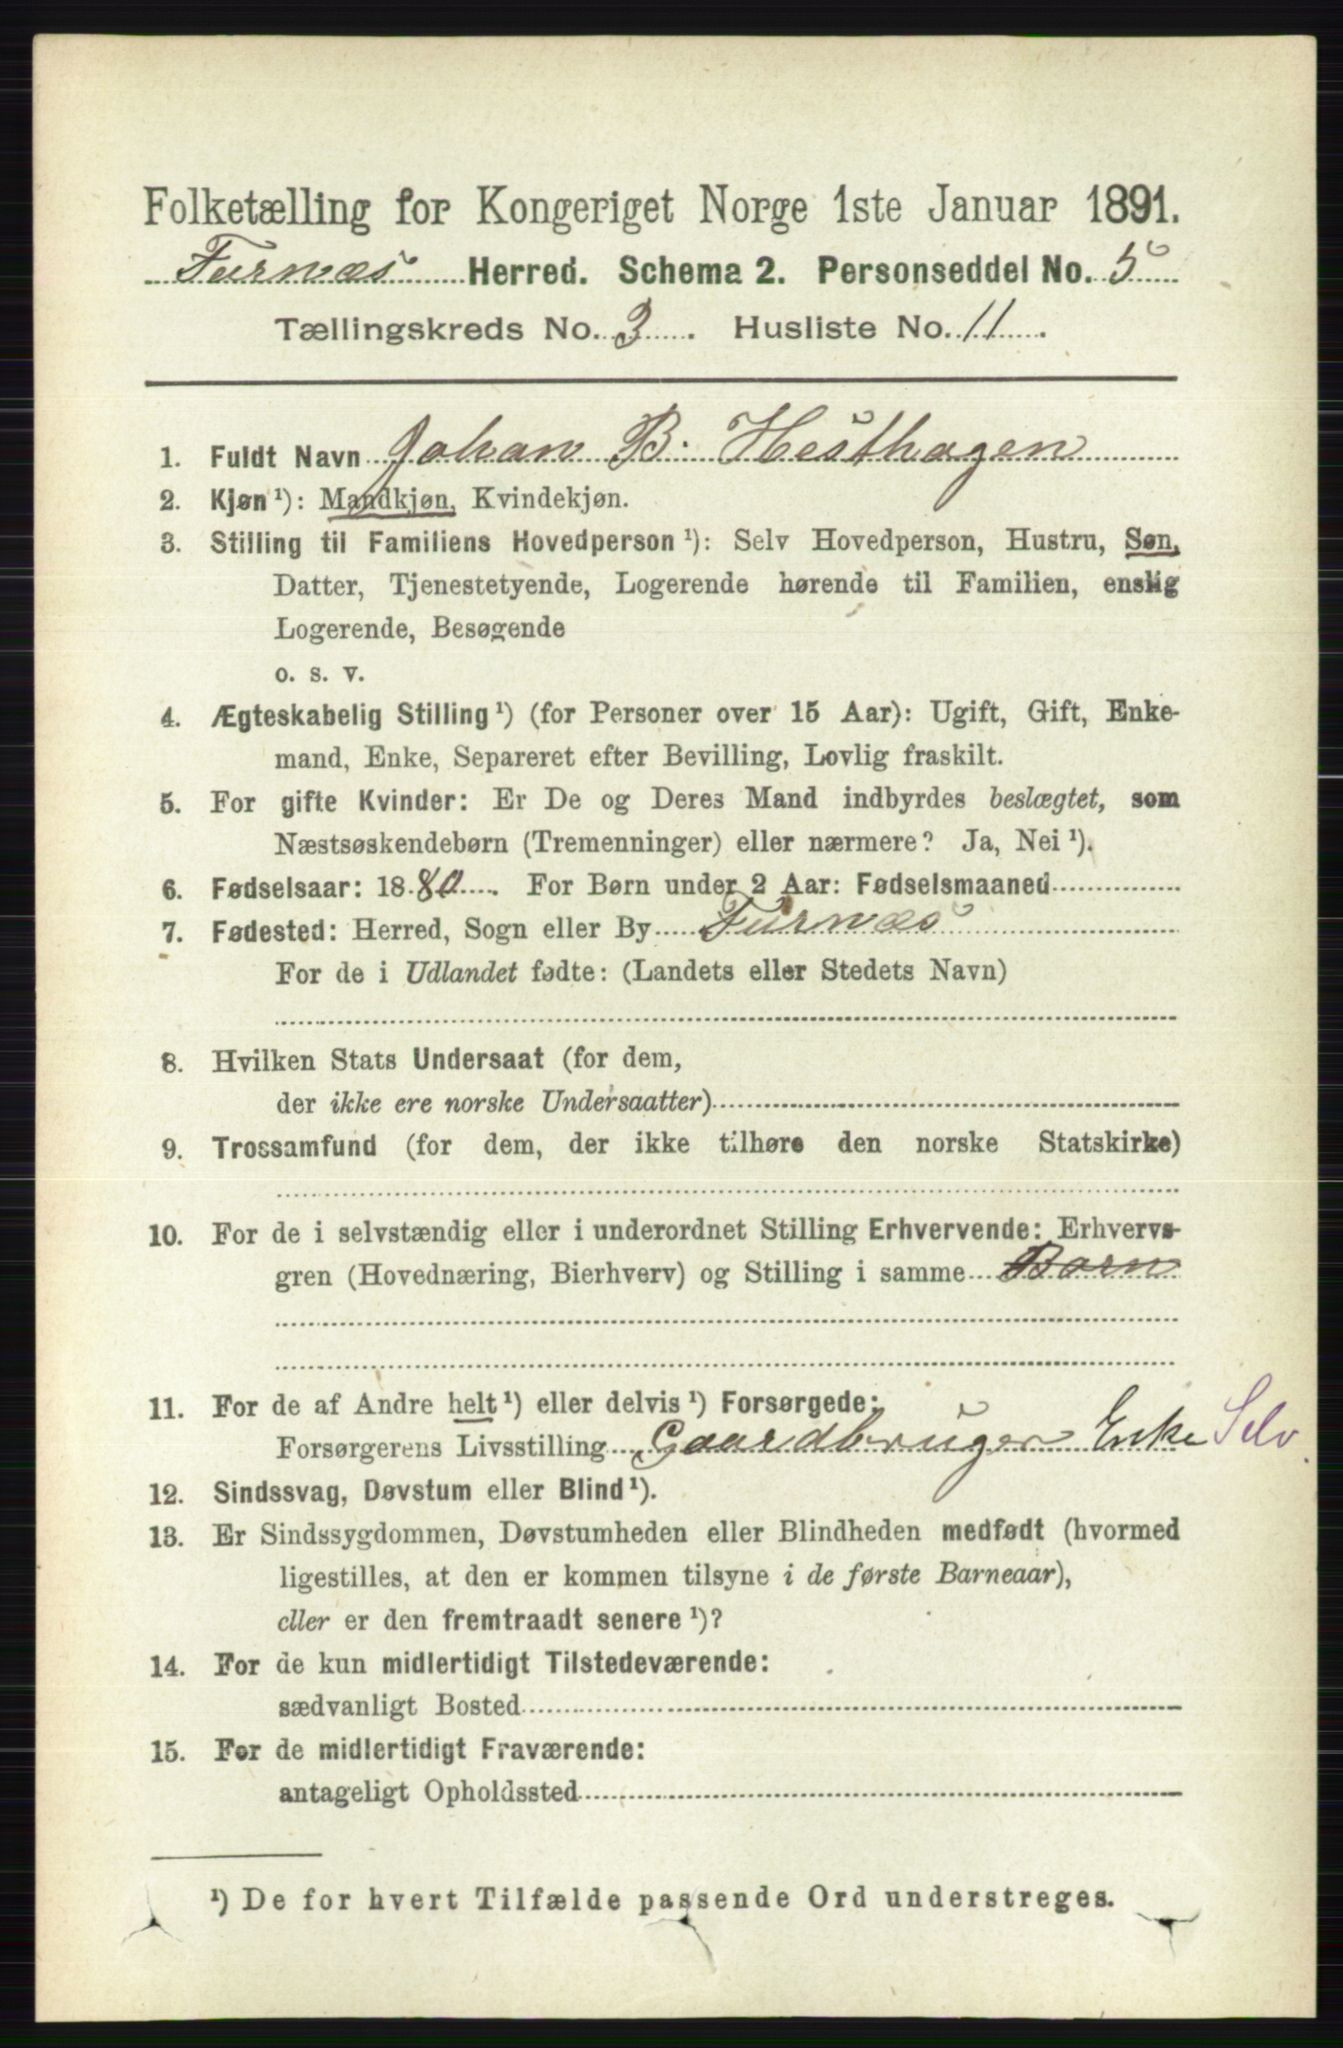 Folketælling for Kongeriget Norge 1ste Januar 1891.
Furnæs Herred. Schema 2. Personseddel No. 5
Tællingskreds No. 3. Husliste No. 11.
1. Fuldt Navn Johan B. Hesthagen
2. Kjøn¹): Mandkjøn, Kvindekjøn.
3. Stilling til Familiens Hovedperson¹): Selv Hovedperson, Hustru, Søn,
Datter, Tjenestetyende, Logerende hørende til Familien, enslig
Logerende, Besøgende
o. s. v.
4. Ægteskabelig Stilling¹) (for Personer over 15 Aar): Ugift, Gift, Enke-
mand, Enke, Separeret efter Bevilling, Lovlig fraskilt.
5. For gifte Kvinder: Er De og Deres Mand indbyrdes beslægtet, som
Næstsøskendebørn (Tremenninger) eller nærmere? Ja, Nei¹).
6. Fødselsaar: 1880. For Børn under 2 Aar: Fødselsmaaned
7. Fødested: Herred, Sogn eller By Furnæs
For de i Udlandet fødte: (Landets eller Stedets Navn)
8. Hvilken Stats Undersaat (for dem,
der ikke ere norske Undersaatter)
9. Trossamfund (for dem, der ikke tilhøre den norske Statskirke)
10. For de i selvstændig eller i underordnet Stilling Erhvervende: Erhvervs-
gren (Hovednæring, Bierhverv) og Stilling i samme Barn
11. For de af Andre helt¹) eller delvis¹) Forsørgede:
Forsørgerens Livsstilling Gaardbruger Enke Selv
12. Sindssvag, Døvstum eller Blind¹).
13. Er Sindssygdommen, Døvstumheden eller Blindheden medfødt (hvormed
ligestilles, at den er kommen tilsyne i de første Barneaar),
eller er den fremtraadt senere¹)?
14. For de kun midlertidigt Tilstedeværende:
sædvanligt Bosted
15. For de midlertidigt Fraværende:
antageligt Opholdssted
¹) De for hvert Tilfælde passende Ord understreges.